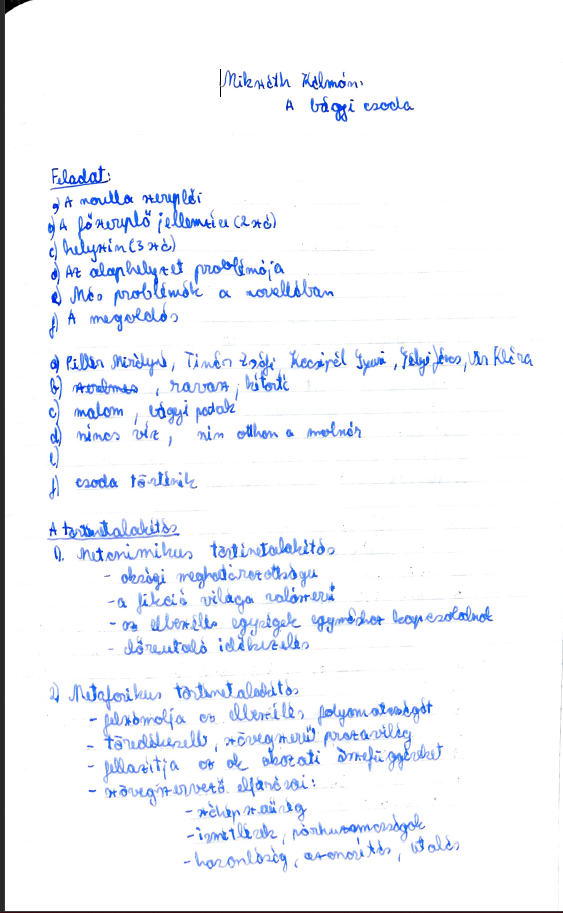 Mikszáth Kálmán:
A bágyi csoda
Feladat:
a) A novella szereplői
b) A főszereplő jellemzése (2 szó)
c) helyszín (3 szó)
d) Az alaphelyzet problémája
e) Más problémák a novellában
f) A megoldás
a) Pillér Mihályné, Tímár Zsófi, Kocsipál Gyuri, Gélyi János, Vér Klára
b) szerelmes, ravasz, kitartó
c) malom, bágyi patak
d) nincs víz, nin otthon a molnár
e)
f) csoda történik
A történetalakítás
1). Metonimikus történetalakítás
- oksági meghatározottságú
- a fikció világa valószerű
- az elbeszélés egységek egymáshoz kapcsolódnak
- előreutaló időkezelés
2) Metaforikus történetalakítás
- felszámolja az elbeszélés folyamatosságát
- töredékesebb, szövegszerű prózavilág
- fellazítja az ok okozati összefüggéseket
- szövegszervező eljárásai:
- szóképszerűség
- ismétlések, párhuzamosságok
- hasonlóság, azonosítás, utalás